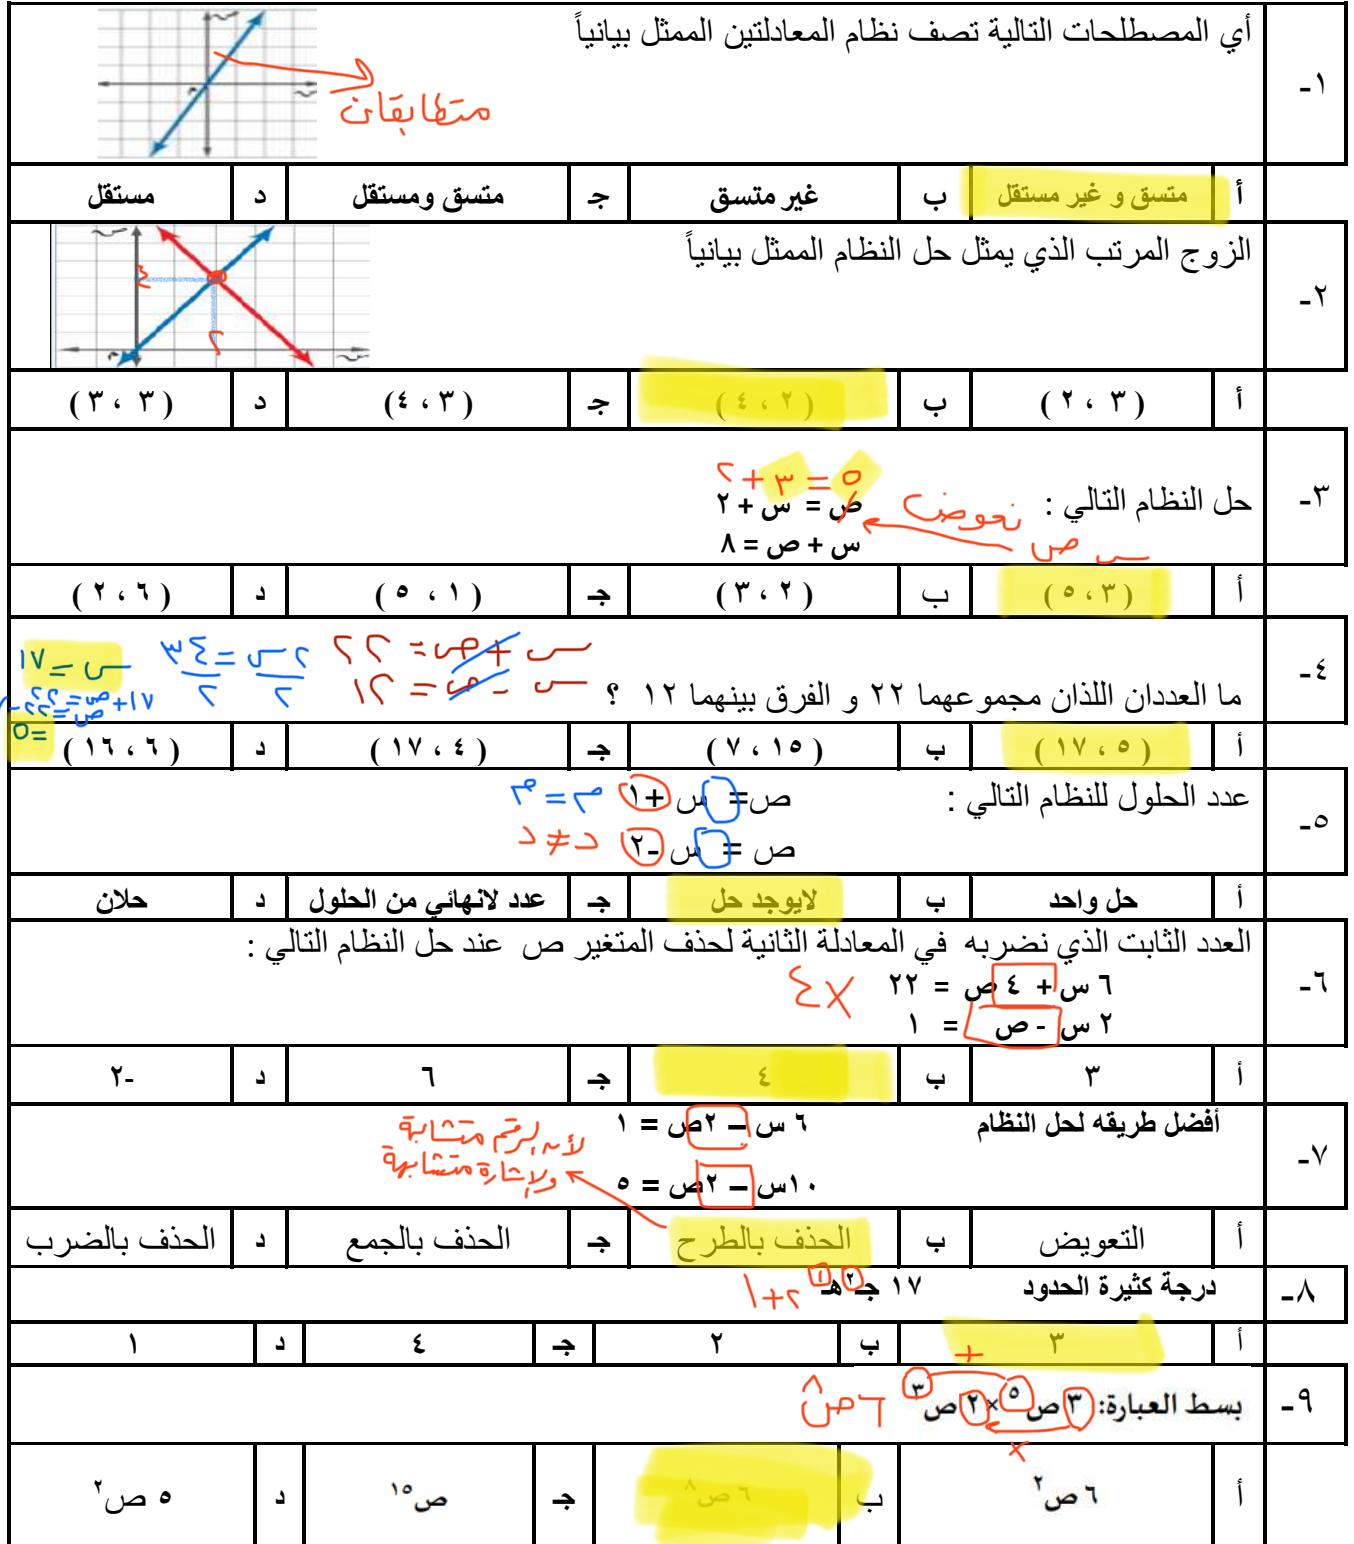 ١- أي المصطلحات التالية تصف نظام المعادلتين الممثل بيانياً
متطابقان
أ متسق و غير مستقل ب غير متسق جـ متسق ومستقل د مستقل
٢- الزوج المرتب الذي يمثل حل النظام الممثل بيانياً
٤
٢
أ ( ٣ ، ٢ ) ب ( ٢ ، ٤ ) جـ ( ٣ ، ٤ ) د ( ٣ ، ٣ )
٥ = ٣ + ٢
٣- حل النظام التالي : ص = س + ٢
نعوض
س + ص = ٨
س ص
أ ( ٣ ، ٥ ) ب ( ٢ ، ٣ ) جـ ( ١ ، ٥ ) د ( ٦ ، ٢ )
س + ص = ٢٢
س - ص = ١٢
٢س = ٣٤
٢ ٢
س = ١٧
١٧ + ص = ٢٢
ص = ٢٢ -
= ٥
٤- ما العددان اللذان مجموعهما ٢٢ و الفرق بينهما ١٢ ؟
أ ( ٥ ، ١٧ ) ب ( ١٥ ، ٧ ) جـ ( ٤ ، ١٧ ) د ( ٦ ، ١٦ )
٥- عدد الحلول للنظام التالي : ص = س + ١
م = م
ص = س - ٢
د ≠ د
أ حل واحد ب لايوجد حل جـ عدد لانهائي من الحلول د حلان
٦- العدد الثابت الذي نضربه في المعادلة الثانية لحذف المتغير ص عند حل النظام التالي :
٦ س + ٤ ص = ٢٢
×٤
٢ س - ص = ١
أ ٣ ب ٤ جـ ٦ د -٢
٧- أفضل طريقه لحل النظام ٦ س – ٢ص = ١
١٠س – ٢ص = ٥
لأن الرقم متشابة
والإشارة متشابهة
أ التعويض ب الحذف بالطرح جـ الحذف بالجمع د الحذف بالضرب
٨- درجة كثيرة الحدود ١٧ جـ٢ هـ١
٢+١
أ ٣ ب ٢ جـ ٤ د ١
+
٩- بسط العبارة: ٣ ص٥ × ٢ ص٣
٦ص٨
×
أ ٦ ص٢ ب ٦ ص٨ جـ ص١٥ د ٥ ص٢